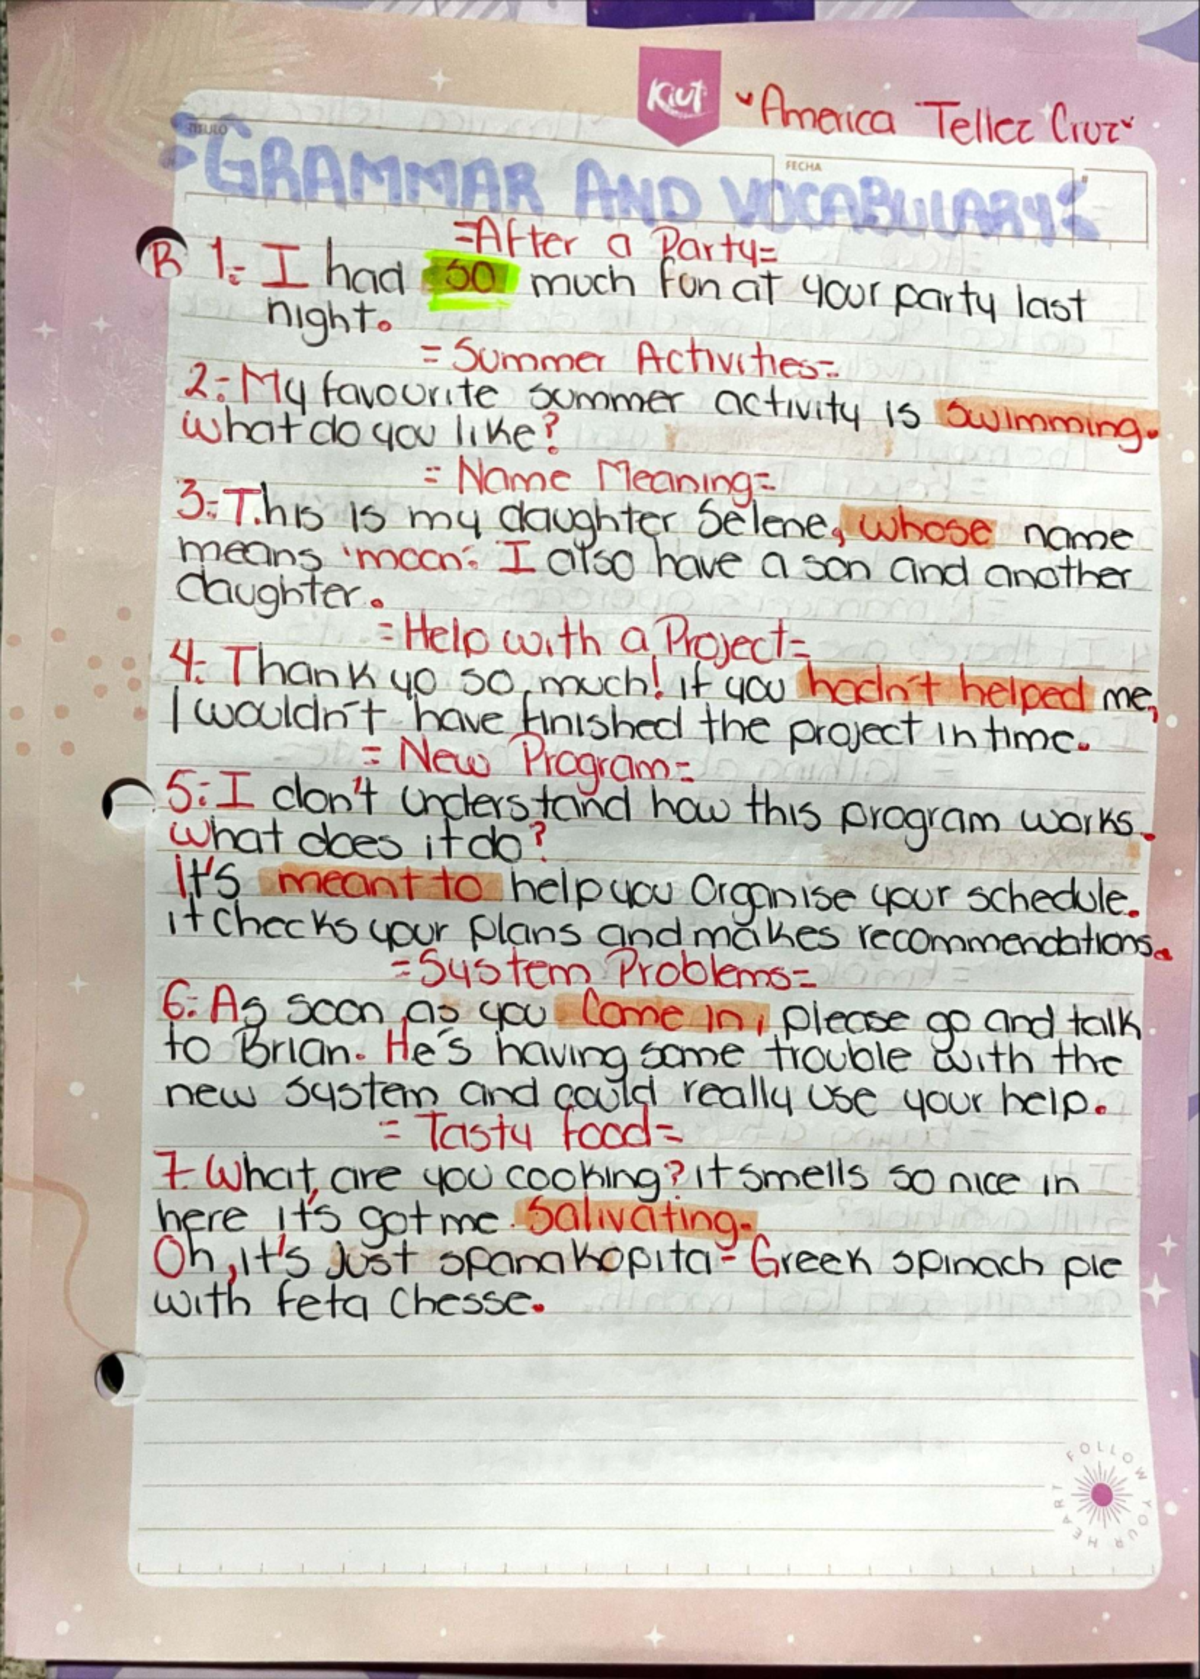 Kiut
America Tellez Cruz
TITULO
FECHA
GRAMMAR AND VOCABULARY
=After a Party=
B 1.- I had so much fun at your party last
night.
=Summer Activities=
2.- My favourite summer activity is swimming.
what do you like?
=Name Meaning=
3.- This is my daughter Selene, whose name
means 'moon'. I also have a son and another
daughter.
=Help with a Project=
4.- Thank yo so much! if you hadn't helped me,
I wouldn't have finished the project in time.
=New Program=
5.- I don't understand how this program works.
what does it do?
It's meant to help you organise your schedule.
it checks your plans and makes recommendations.
=System Problems=
6.- As soon as you come in, please go and talk
to Brian. He's having some trouble with the
new system and could really use your help.
=Tasty food=
7. What, are you cooking? it smells so nice in
here it's got me salivating.
Oh, it's just spanakopita - Greek spinach pie
with feta chesse.
FOLLOW YOUR HEART